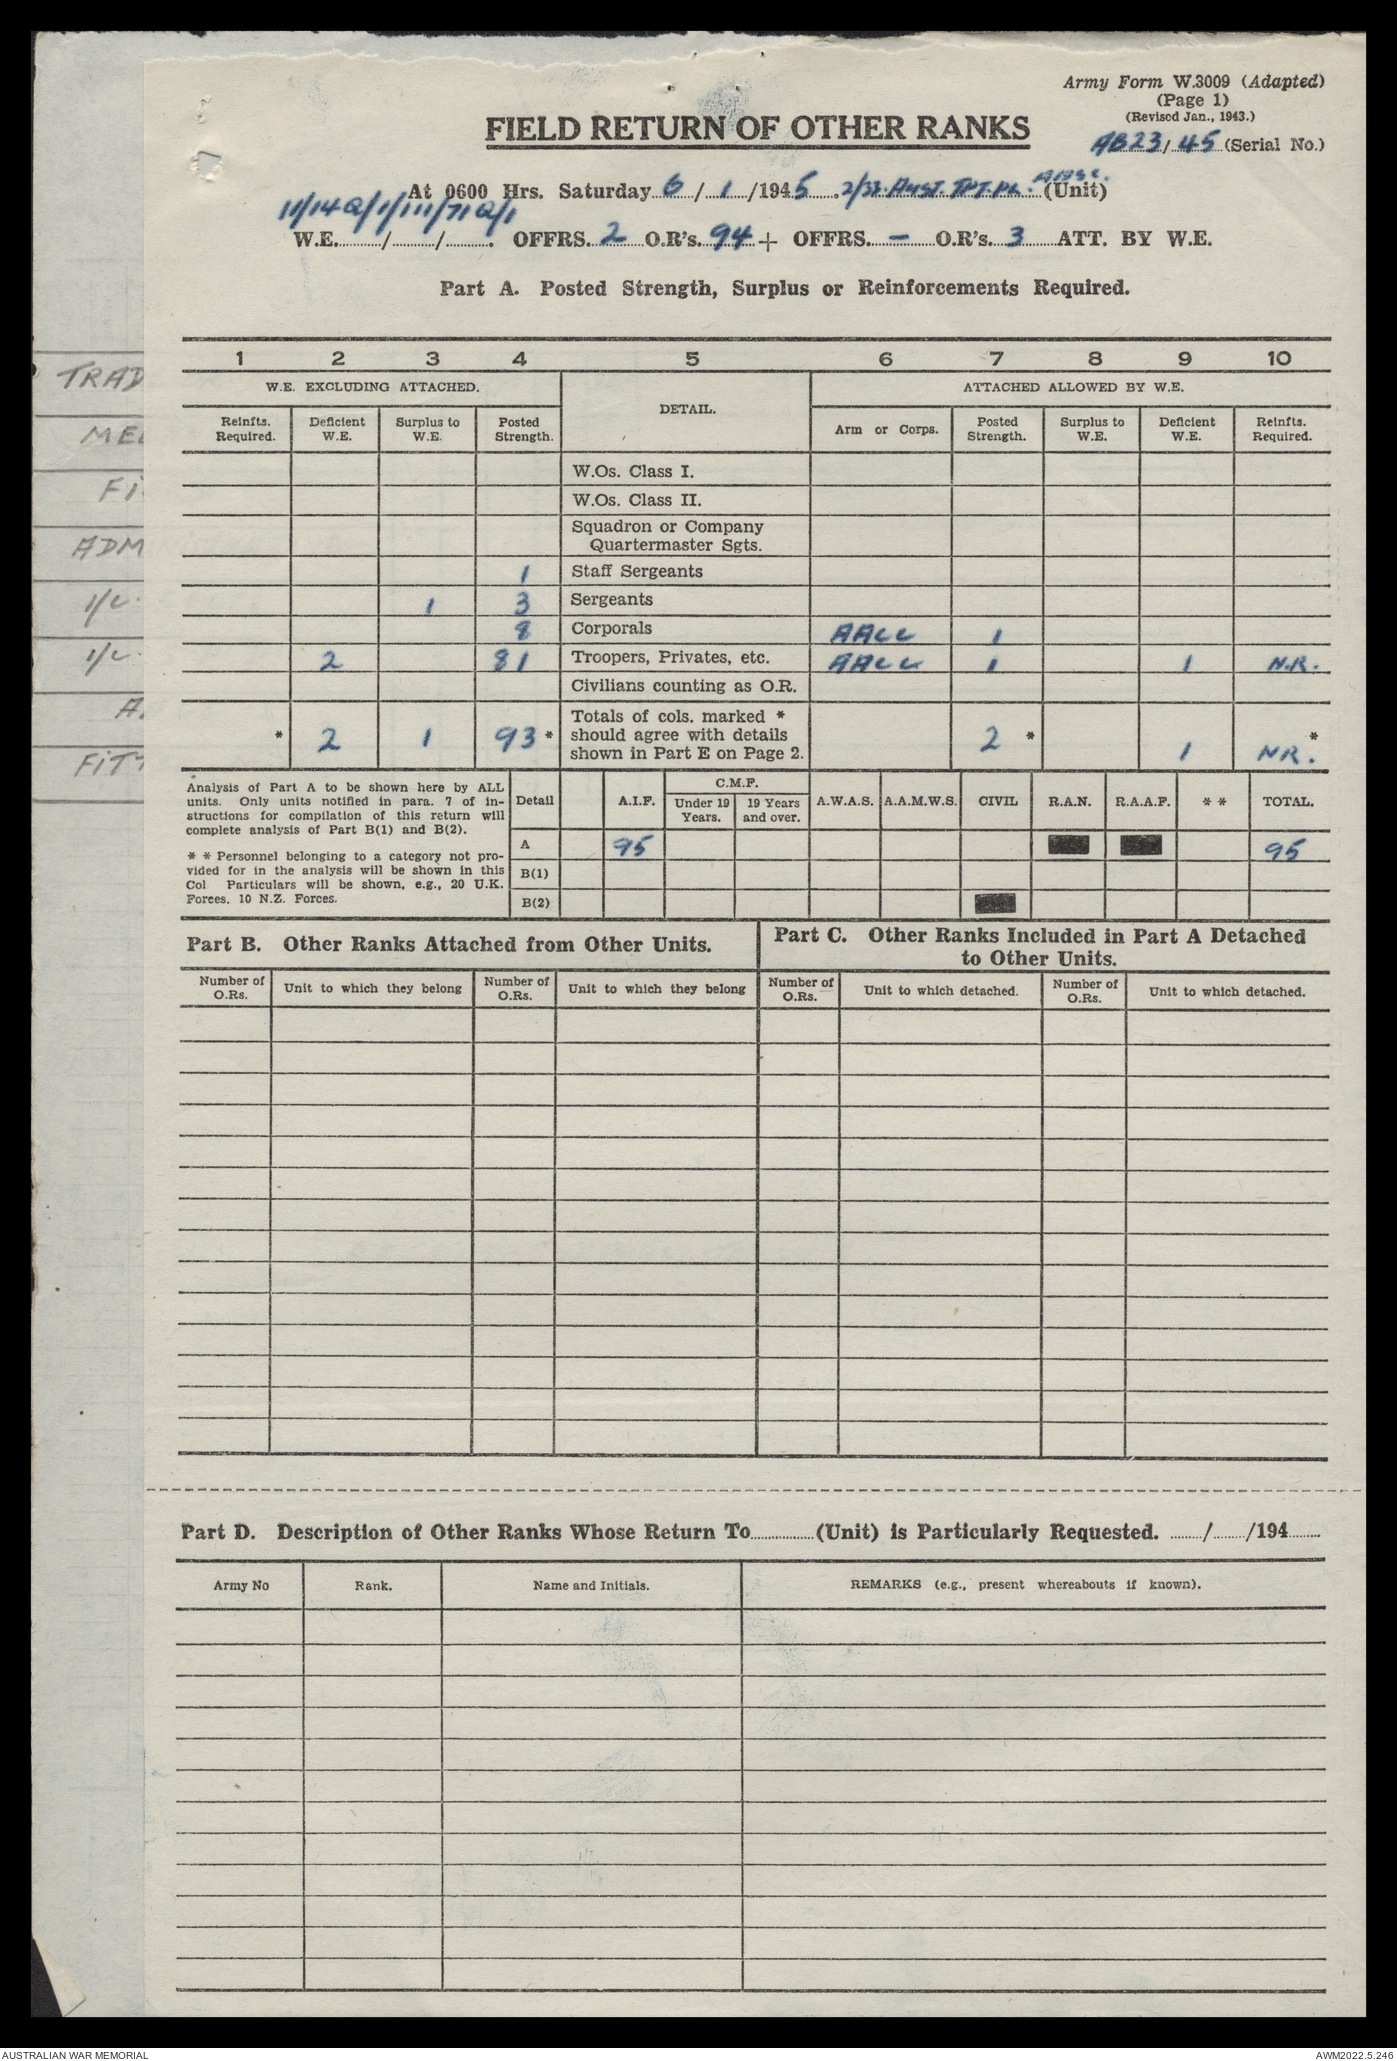 Army Form W.3009 (Adapted)
(Page 1)
(Revised Jan., 1943.)
AB23/45 (Serial No.)
FIELD RETURN OF OTHER RANKS
At 0600 Hrs. Saturday 6/1/1945. 2/33. Aust. TPT. PL. AASC. (Unit)
11/14Q/1/111/71Q/1
W.E. / / . OFFRS. 2 O.R's. 94 + OFFRS. - O.R's. 3 ATT. BY W.E.
Part A. Posted Strength, Surplus or Reinforcements Required.
1 2 3 4 5 6 7 8 9 10
W.E. EXCLUDING ATTACHED. DETAIL. ATTACHED ALLOWED BY W.E.
Reinfts. Required. Deficient W.E. Surplus to W.E. Posted Strength. Arm or Corps. Posted Strength. Surplus to W.E. Deficient W.E. Reinfts. Required.
W.Os. Class I.
W.Os. Class II.
Squadron or Company
Quartermaster Sgts.
1 Staff Sergeants
1 3 Sergeants
8 Corporals AACC 1
2 81 Troopers, Privates, etc. AACC 1 1 N.R.
Civilians counting as O.R.
Totals of cols. marked *
* 2 1 93 * should agree with details 2 * 1 NR. *
shown in Part E on Page 2.
Analysis of Part A to be shown here by ALL
units. Only units notified in para. 7 of in-
structions for compilation of this return will
complete analysis of Part B(1) and B(2).
* * Personnel belonging to a category not pro-
vided for in the analysis will be shown in this
Col Particulars will be shown, e.g., 20 U.K.
Forces. 10 N.Z. Forces.
Detail A.I.F. C.M.F. Under 19 Years. 19 Years and over. A.W.A.S. A.A.M.W.S. CIVIL R.A.N. R.A.A.F. * * TOTAL.
A 95 95
B(1)
B(2)
Part B. Other Ranks Attached from Other Units.
Part C. Other Ranks Included in Part A Detached
to Other Units.
Number of O.Rs. Unit to which they belong Number of O.Rs. Unit to which they belong Number of O.Rs. Unit to which detached. Number of O.Rs. Unit to which detached.
Part D. Description of Other Ranks Whose Return To (Unit) is Particularly Requested. / /194
Army No Rank. Name and Initials. REMARKS (e.g., present whereabouts if known).
TRAD
FI
ADM
1/C.
1/C.
FITT
AUSTRALIAN WAR MEMORIAL
AWM2022.5.246